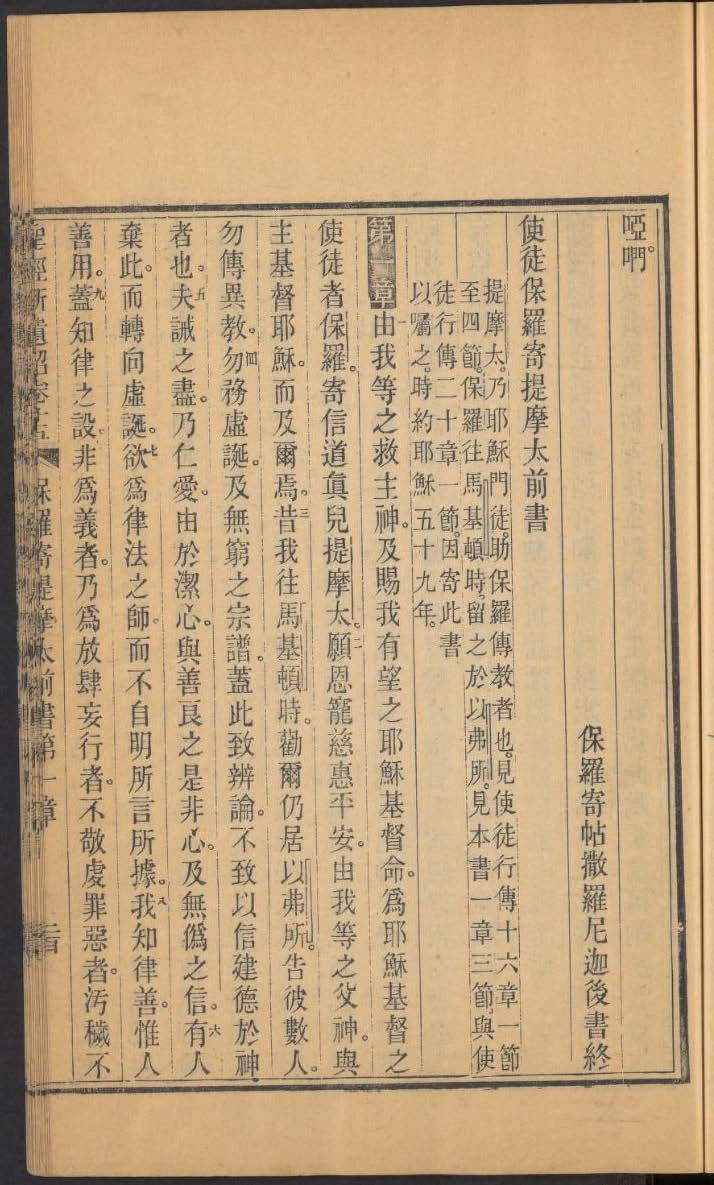 啞啊。
保羅寄帖撒羅尼迦後書終
使徒保羅寄提摩太前書
提摩太。乃耶穌門徒。助保羅傳教者也。見使徒行傳十六章一節
至四節。保羅往馬基頓時。留之於以弗所。見本書一章三節。與使
徒行傳二十章一節。因寄此書
以囑之。時約耶穌五十九年。
第一章一由我等之救主神。及賜我有望之耶穌基督命。爲耶穌基督之
使徒者保羅。寄信道眞兒提摩太。二願恩寵慈惠平安。由我等之父神。與
主基督耶穌。而及爾焉。三昔我往馬基頓時。勸爾仍居以弗所。吿彼數人。
勿傳異教。四勿務虛誕。及無窮之宗譜。蓋此致辨論。不致以信建德於神
者也。五夫誡之盡。乃仁愛。由於潔心。與善良之是非心。及無僞之信。六有人
棄此。而轉向虛誕。七欲爲律法之師。而不自明所言所據。八我知律善。惟人
善用。九蓋知律之設。非爲義者。乃爲放肆妄行者。不敬虔罪惡者。汚穢不
聖經新遺詔卷十五 保羅寄提摩太前書第一章